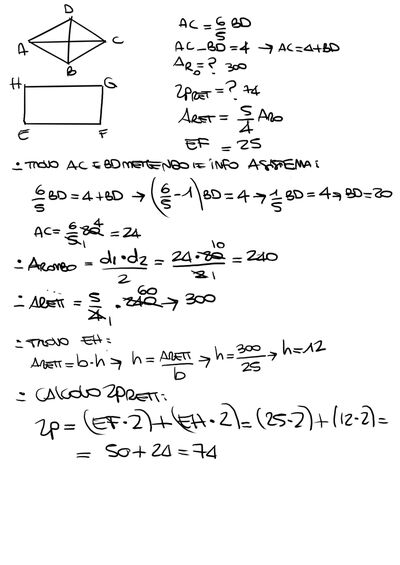 D
A
C
B
H
G
E
F
AC = 6/5 BD
AC - BD = 4 → AC = 4 + BD
A_R0 = ? 300
2p_RET = ? 74
A_RET = 5/4 A_RO
EF = 25
∸ TROVO AC E BD METTENDO LE INFO A SISTEMA:
6/5 BD = 4 + BD → (6/5 - 1) BD = 4 → 1/5 BD = 4 → BD = 20
AC = 6/5 · 20 = 24
∸ A_ROMBO = d1 · d2 / 2 = 24 · 20 / 2 = 240
∸ A_RETT = 5/4 · 240 → 300
∸ TROVO EH:
A_RETT = b · h → h = A_RETT / b → h = 300/25 → h = 12
∸ CALCOLO 2P_RETT:
2p = (EF · 2) + (EH · 2) = (25 · 2) + (12 · 2) =
= 50 + 24 = 74